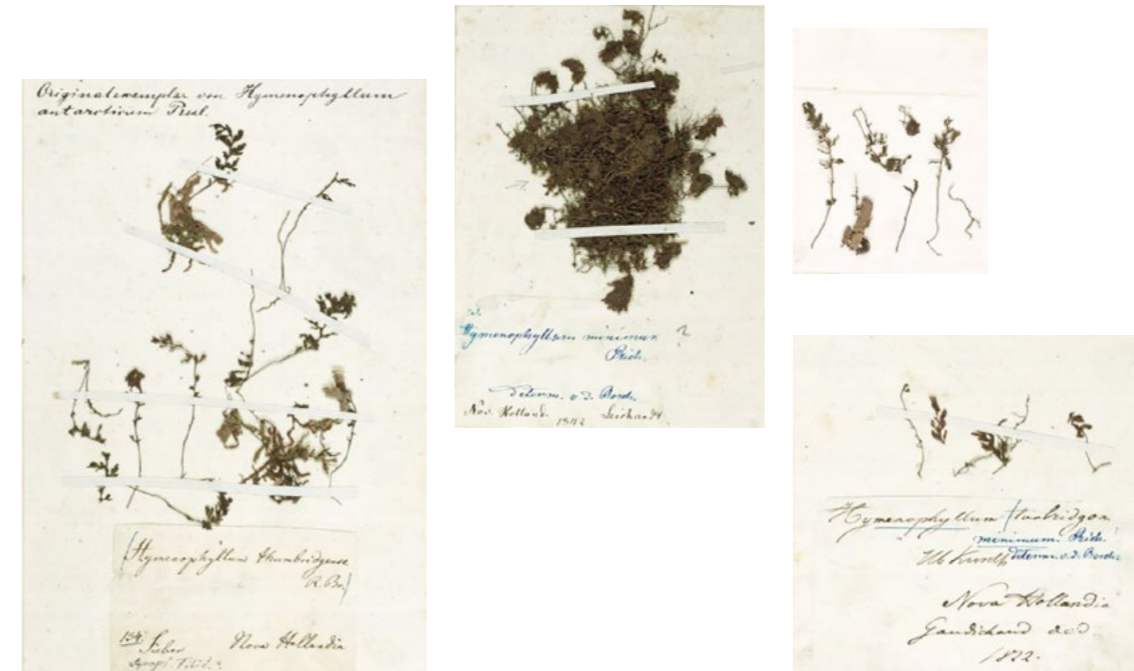 Originalexemplar von Hymenophyllum
antarcticum Presl.
(Hymenophyllum thunbridgense
R. Br.)
154. Sieber Nova Hollandia
Hymenophyllum minimum ?
Rich.
determ. v. d. Bosch.
Nov. Holland. Leichardt
Hymenophyllum (tunbridgen
minimum. Rich.
Hb Kunth determ. v. d. Bosch.
Nova Hollandia
Gaudichaud ded
1822.